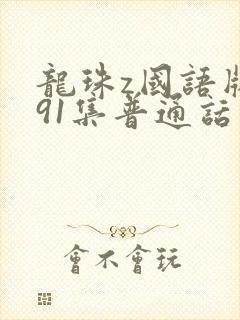 龍珠z國語版
91集普通話
會不會玩